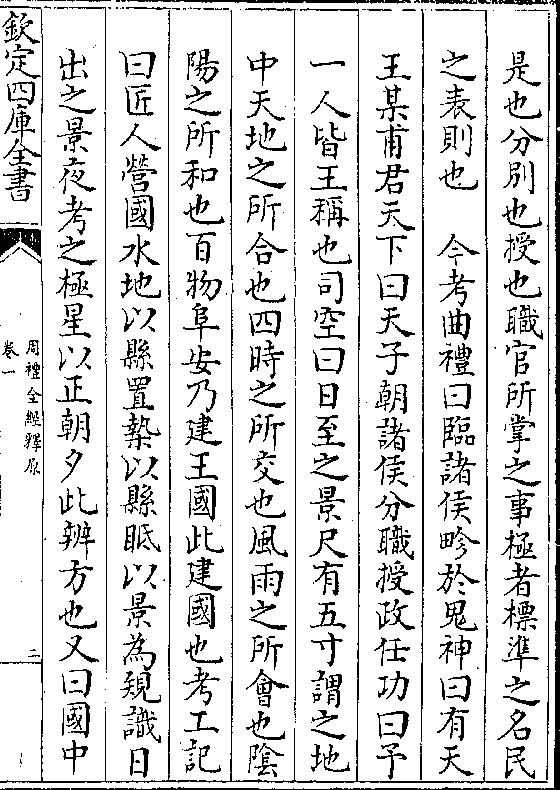 是也分別也授也職官所掌之事極者標準之名民
之表則也　今考曲禮曰臨諸侯畛於鬼神曰有天
王某甫君天下曰天子朝諸侯分職授政任功曰予
一人皆王稱也司空曰日至之景尺有五寸謂之地
中天地之所合也四時之所交也風雨之所會也陰
陽之所和也百物阜安乃建王國此建國也考工記
曰匠人營國水地以縣置槷以縣眂以景為規識日
出之景夜考之極星以正朝夕此辨方也又曰國中
欽定四庫全書
周禮全經釋原
卷一
二